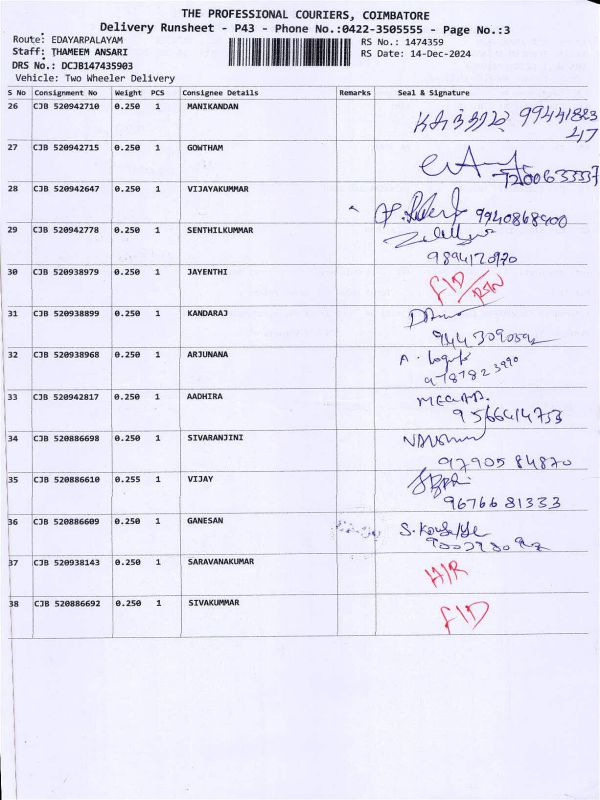 THE PROFESSIONAL COURIERS, COIMBATORE
Delivery Runsheet - P43 - Phone No.:0422-3505555 - Page No.:3
Route: EDAYARPALAYAM
RS No.: 1474359
Staff: THAMEEM ANSARI
RS Date: 14-Dec-2024
DRS No.: DCJB147435903
Vehicle: Two Wheeler Delivery
S No Consignment No Weight PCS Consignee Details Remarks Seal & Signature
26 CJB 520942710 0.250 1 MANIKANDAN 99441823
47
27 CJB 520942715 0.250 1 GOWTHAM
7200633337
28 CJB 520942647 0.250 1 VIJAYAKUMMAR
9940868900
29 CJB 520942778 0.250 1 SENTHILKUMMAR
9894170970
30 CJB 520938979 0.250 1 JAYENTHI FID/
31 CJB 520938899 0.250 1 KANDARAJ
32 CJB 520938968 0.250 1 ARJUNANA A.
9787823990
33 CJB 520942817 0.250 1 AADHIRA
9566414753
34 CJB 520886698 0.250 1 SIVARANJINI
9790584870
35 CJB 520886610 0.255 1 VIJAY
9676681333
36 CJB 520886609 0.250 1 GANESAN S.
37 CJB 520938143 0.250 1 SARAVANAKUMAR H/R
38 CJB 520886692 0.250 1 SIVAKUMMAR FID